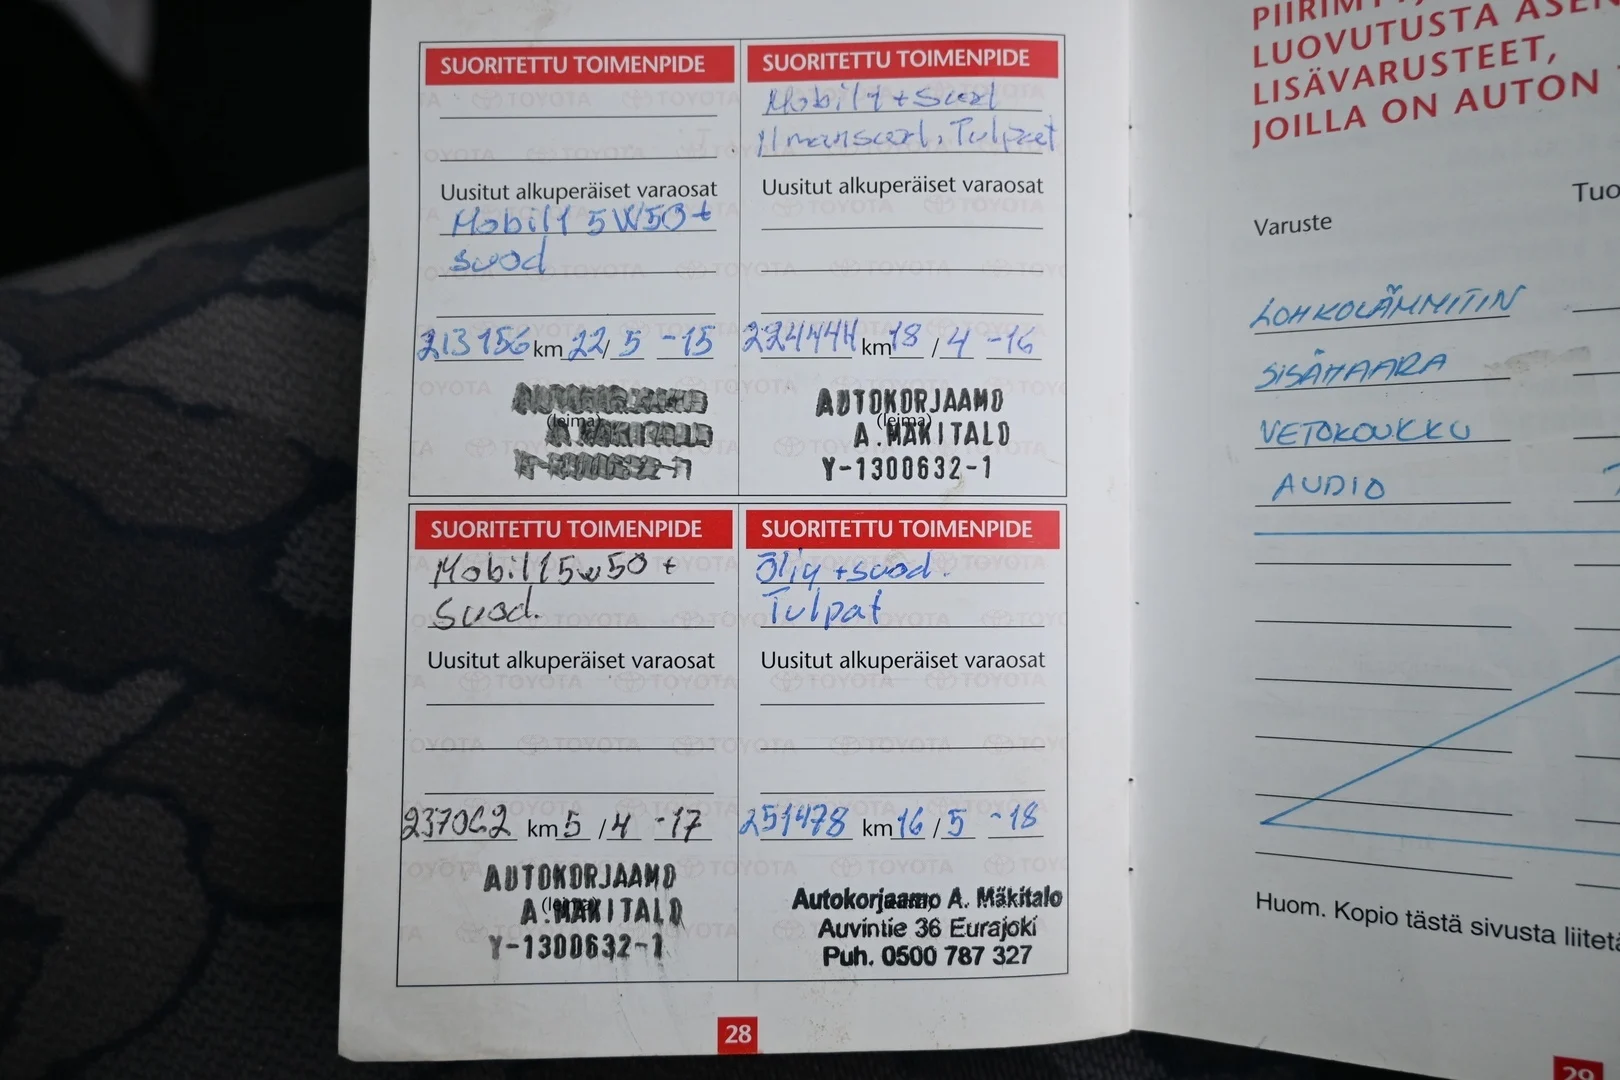 SUORITETTU TOIMENPIDE
Uusitut alkuperäiset varaosat
Mobil 1 5W50 +
suod
213 156 km 22/5 -15
(leima)
SUORITETTU TOIMENPIDE
Mobil 1 + Suod
Ilmansuod. Tulpat
Uusitut alkuperäiset varaosat
224444 km 18/4 -16
AUTOKORJAAMO
(leima)
A.MÄKITALO
Y-1300632-1
SUORITETTU TOIMENPIDE
Mobil 1 5w50 +
Suod.
Uusitut alkuperäiset varaosat
237062 km 5/4 -17
AUTOKORJAAMO
(leima)
A.MÄKITALO
Y-1300632-1
SUORITETTU TOIMENPIDE
Öljy + suod.
Tulpat
Uusitut alkuperäiset varaosat
251478 km 16/5 -18
Autokorjaamo A. Mäkitalo
Auvintie 36 Eurajoki
Puh. 0500 787 327
28
LUOVUTUSTA
LISÄVARUSTEET,
JOILLA ON AUTON
Varuste
LOHKOLÄMMITIN
SISÄHAARA
VETOKOUKKU
AUDIO
Huom. Kopio tästä sivusta
29